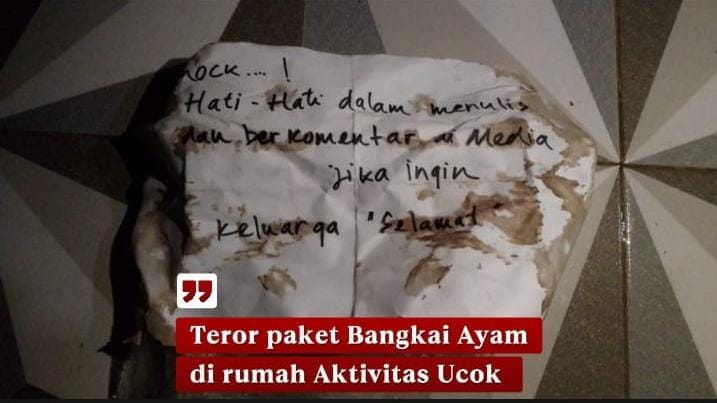 ock.... !
Hati - Hati dalam menulis
dan berkomentar di Media
jika ingin
keluarga "Selamat"
Teror paket Bangkai Ayam
di rumah Aktivitas Ucok